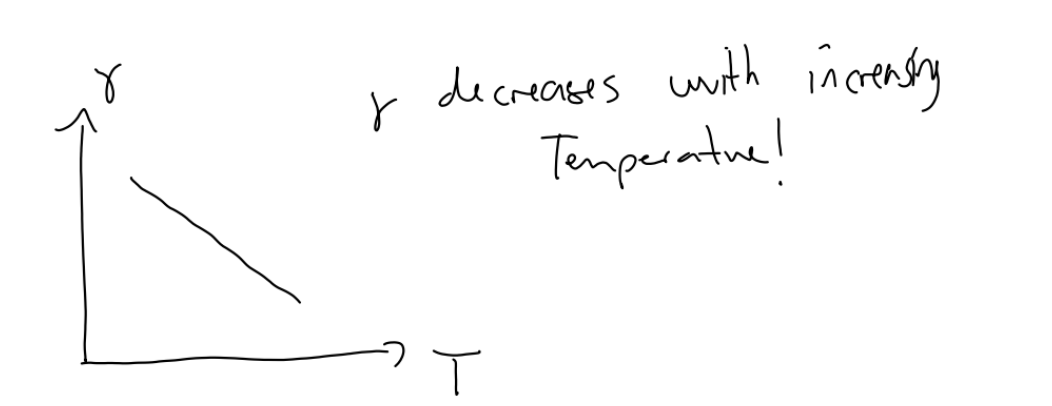 γ
γ decreases with increasing
Temperature!
T